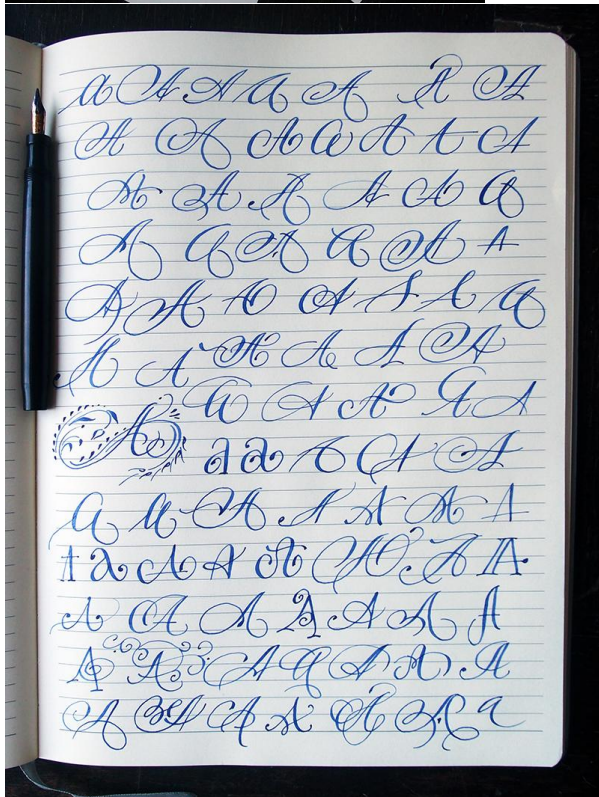 a A A a A A A
A A A a A A A
A A A A A a
A a A a A A
A A A A A A a
A A A A A A
a A A A A
A a a A A A
a a A A A A A
A a A A A A A A
A A A A A A A
A A A A A A A
A A A A A A a